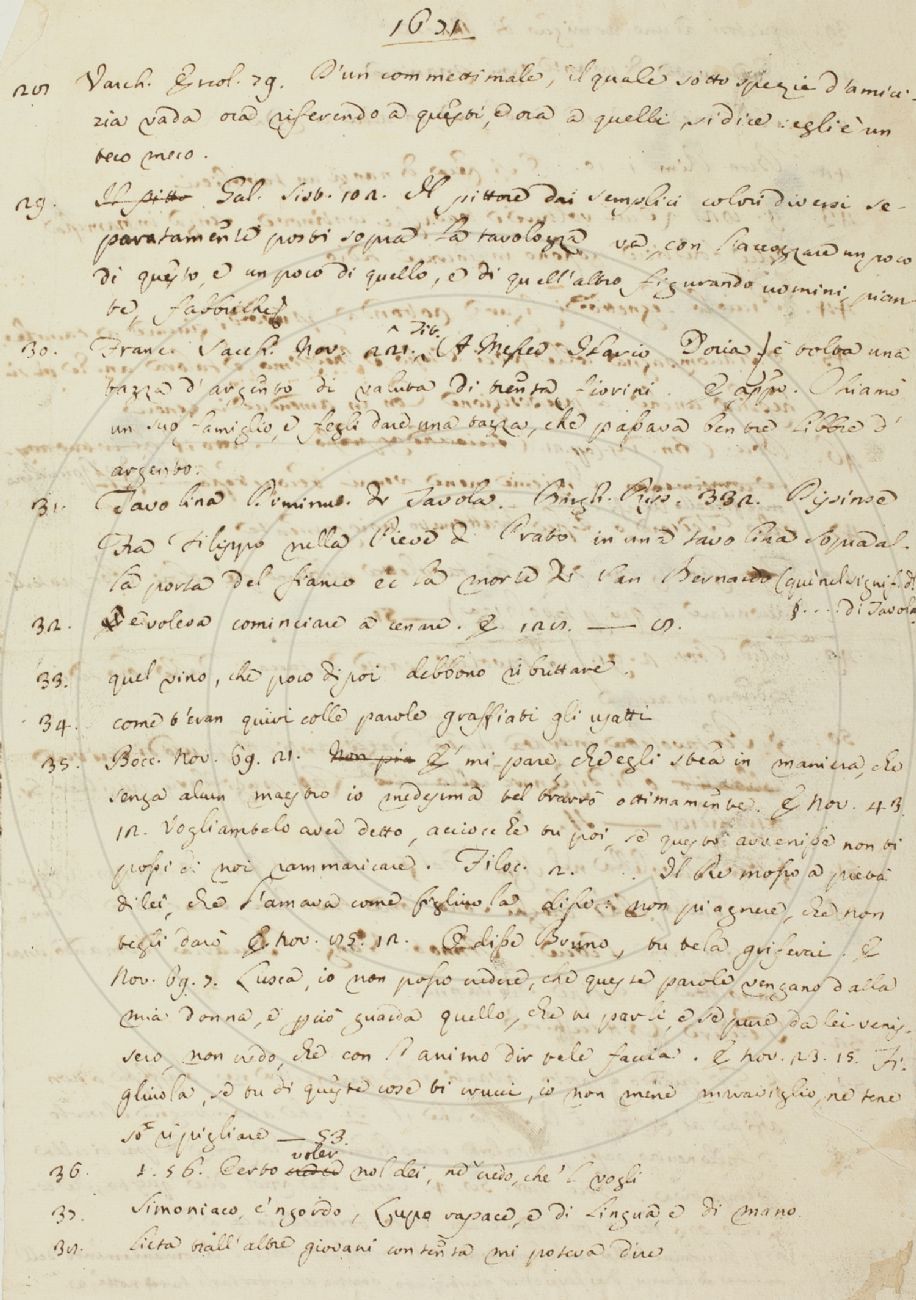 1671
28 Varch. Ercol. 79. D'un commettimale, il quale sotto spezie d'amici-
zia vada ora riferendo a questi, e ora a quelli, si dice: egli è un
teco meco.
29. Il pitto Gal. Sist. 102. Il pittore dai semplici colori diversi se-
paratamente posti sopra la tavolozza va, con l'accozzare un poco
di questo, e un poco di quello, e di quell'altro figurando uomini, pian-
te, fabbriche
30. Franc. Sacch. Nov. tit. (A Messer Ilario Doria) è tolta una
tazza d'argento di valuta di trenta fiorini. E appr. Chiamò
un suo famiglio, e fegli dare una tazza, che pesava ben tre libbre d'
argento.
31. Tavolina Diminut. di Tavola. Borgh. Rip. 332. Dipinse
Fra Filippo nella Pieve di Prato in una tavolina sopra al-
la porta del fianco ec la morte di San Bernardo (qui nel signif. di
§ . . . . di Tavola
32. e voleva cominciare a cenare. E 128. — 8.
33. quel vino, che poco di poi debbono ributtare.
34. come t'eran quivi colle parole graffiati gli usatti
35. Bocc. Nov. 69. 21. Non pia E' mi pare, che egli stea in maniera, che
senza alcun maestro io medesima tel trarrò ottimamente. E Nov. 43.
12. Vogliamtelo aver detto, acciocchè tu poi, se questo avvenisse non ti
possi di noi rammaricare. Filoc. 2. . . Il Re mosso a pietà
di lei, che l'amava come figliuola disse: non piagnere, che non
tegli darò E Nov. 85. 12. E disse Bruno, tu tela griferai. E
Nov. 69. 7. Lusca, io non posso credere, che queste parole vengano dalla
mia donna, e però guarda quello, che tu parli, e se pure da lei venis-
sero, non credo, che con l'animo dir tele faccia. E nov. 23. 15. Fi-
gliuola, se tu di queste cose ti crucci, io non mene maraviglio, ne tene
so ripigliare — 53.
36. 1. 56. Certo voler nol dei, nè credo, che 'l vogli
37. Simoniaco, e 'ngordo, Lupo rapace, e di lingua, e di mano.
38. lieta trall'altre giovani contenta mi poteva dire